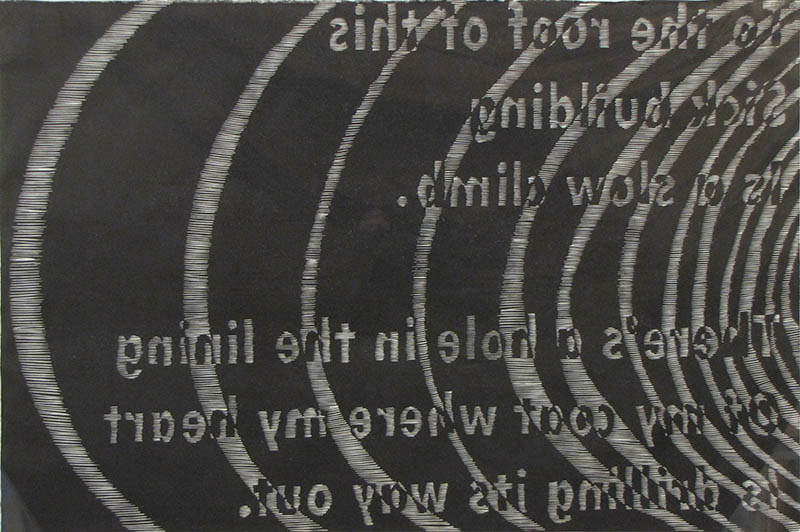 To the roof of this
Sick building
Is a slow climb.
There's a hole in the lining
Of my coat where my heart
Is drilling its way out.